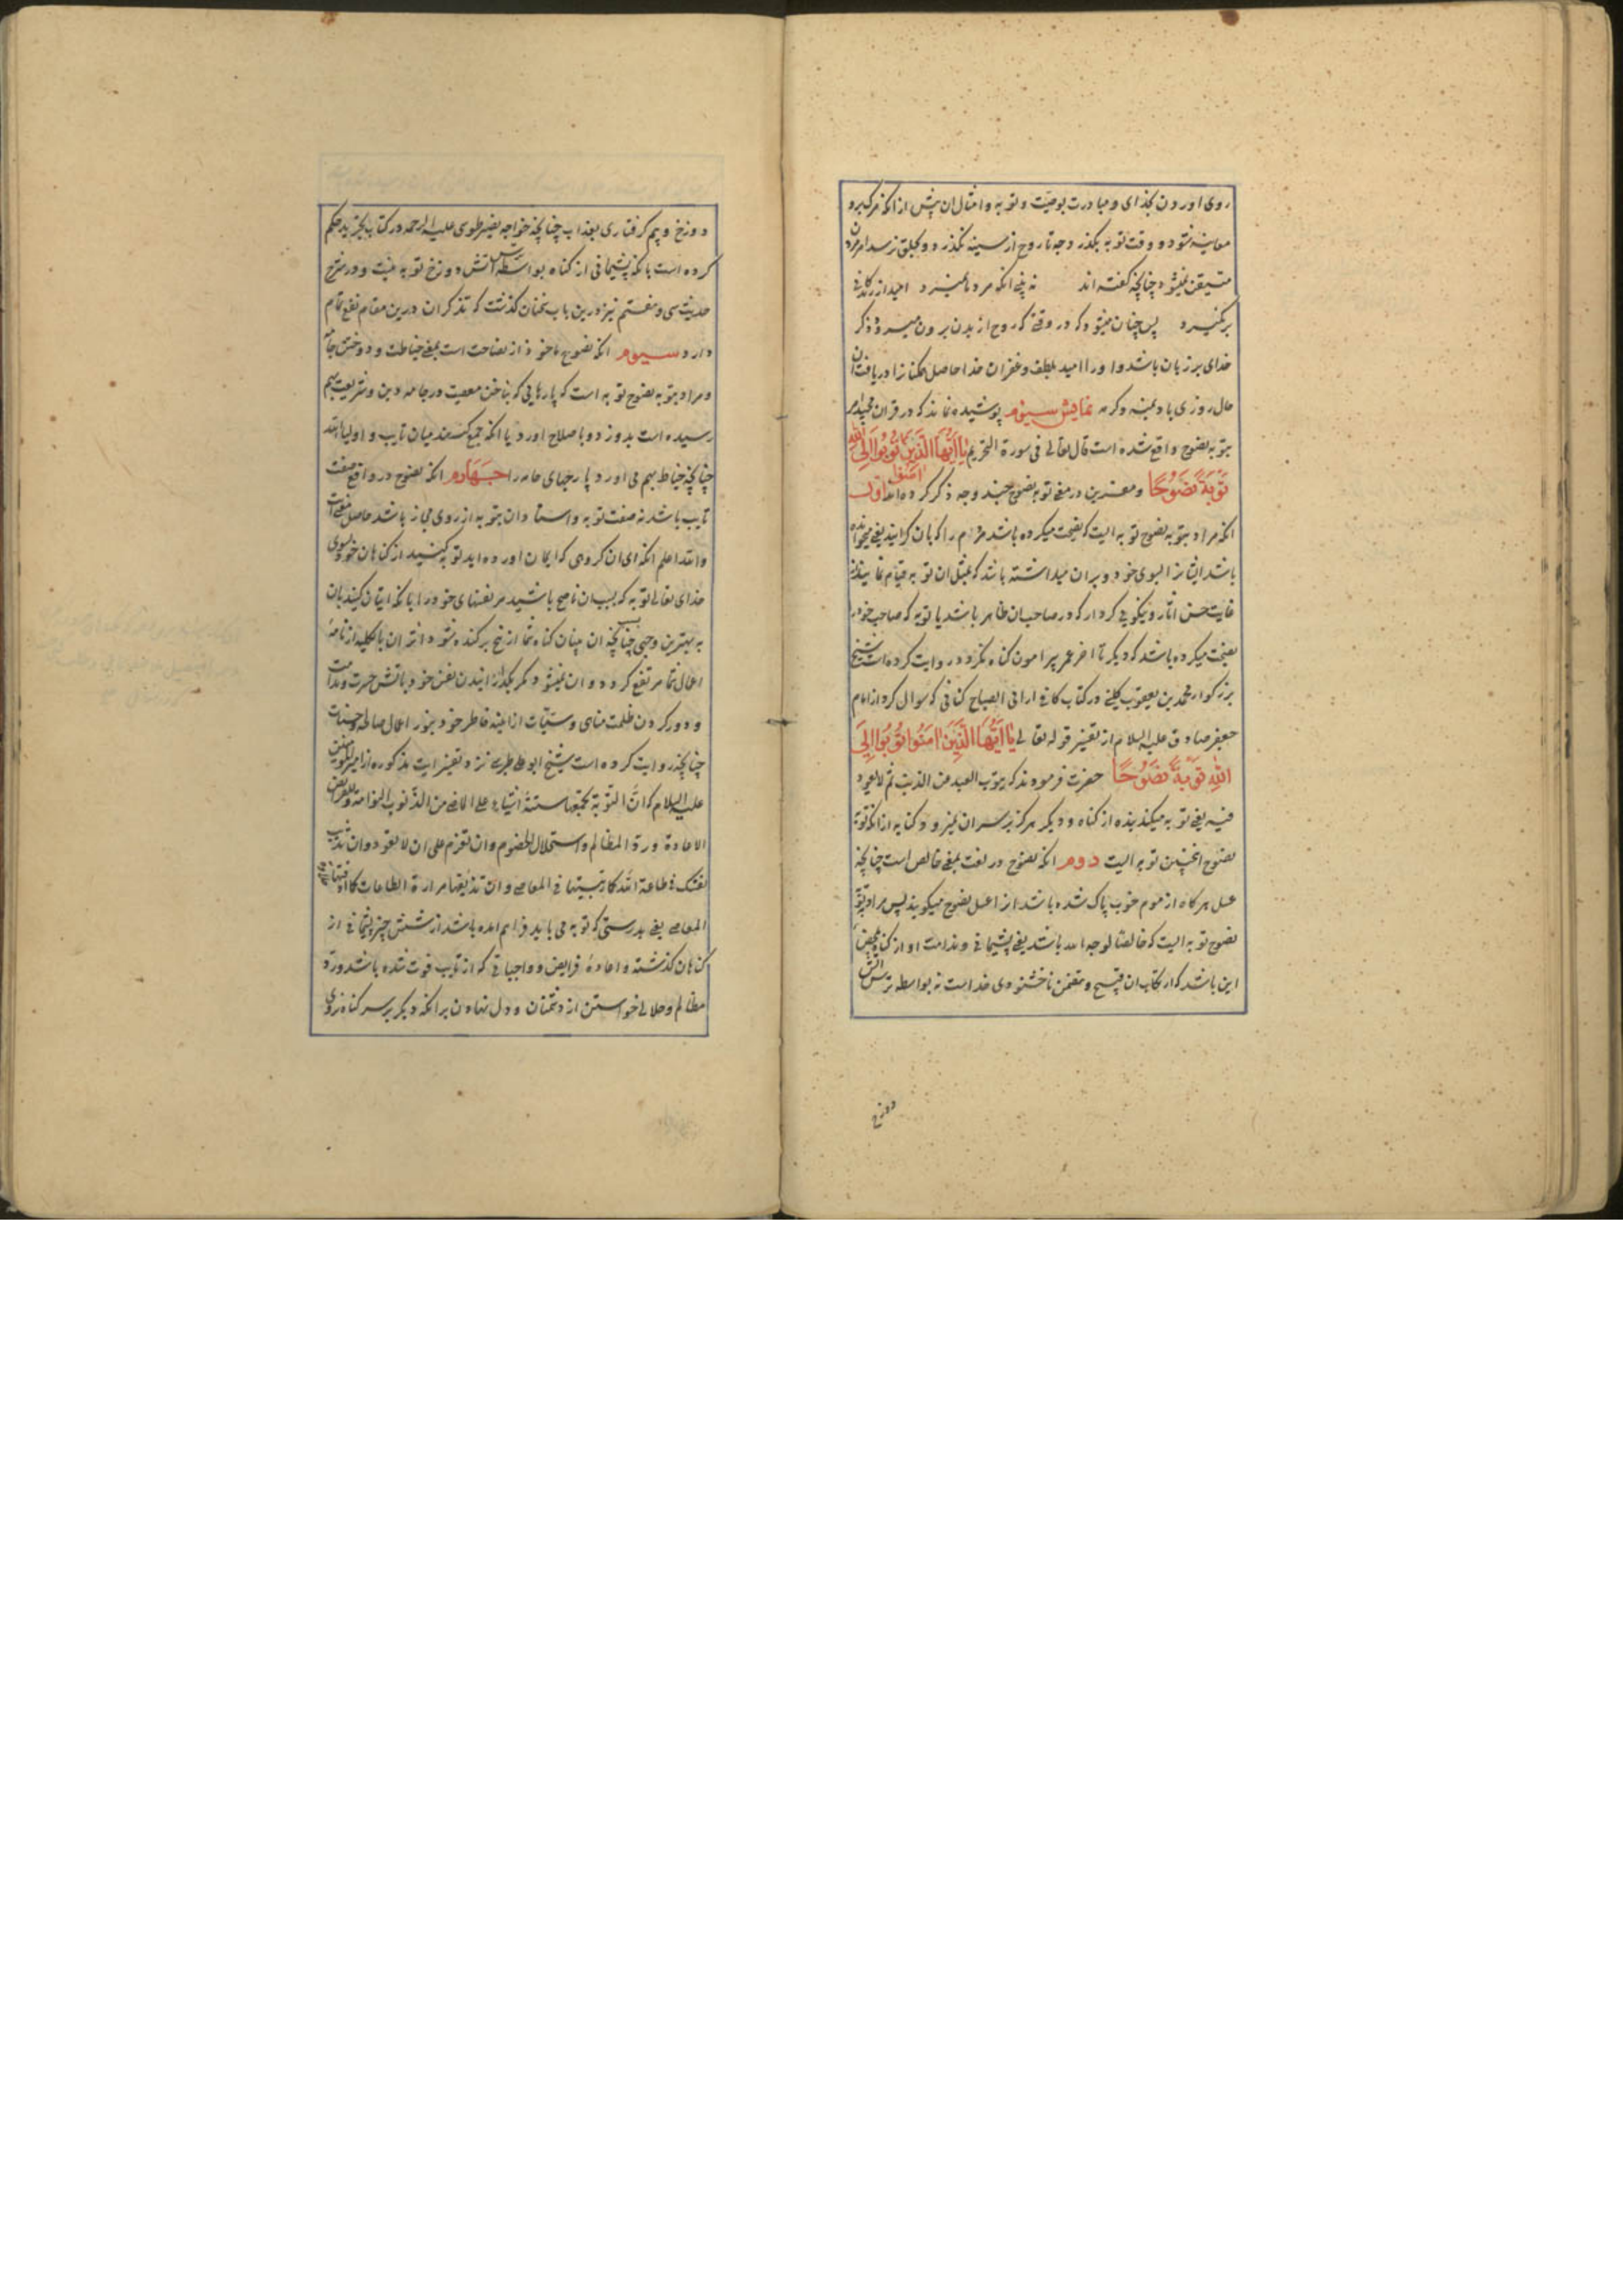 روی اوردن بخدای و مبادرت بوصیت و توبه و امثال ان پیش از انکه مرگ برو
معاینه شود و وقت توبه بگذرد چه تا روح از سینه نگذرد و بحلق نرسد امر مردن
متیقن نمیشود چنانچه گفته اند نه پی انکه مرد نمیرد امید از زندگانی
برنگیرد پس چنان میشود که در وقتی که روح از بدن برون میرود ذکر
خدای بر زبان باشد و او را امید بلطف و غفران خدا حاصل
حال روزی باد بمنه و کرمه نمایش سیوم پوشیده نماند که در قران مجید امر
بتوبه نصوح واقع شده است قال تعالی فی سورة التحریم یا ایها الذین امنوا توبوا الی الله
توبة نصوحا و مفسرین در معنی توبه نصوح چند وجه ذکر کرده اند اول
انکه مراد بتوبه نصوح توبه ایست که نصیحت میکرده باشد مردم را که بان گرایند یعنی میخوانده
باشد ایشانرا بسوی خود و بران میداشته باشد که بمثل ان توبه قیام نمایند از
غایت حسن اثار و نیکویی کردار که در صاحب ان ظاهر باشد یا توبه که صاحب خود را
نصیحت میکرده باشد که دیگر تا اخر عمر پیرامون گناه نگردد روایت کرده است شیخ
بزرگوار محمد بن یعقوب کلینی در کتاب کافی از ابی الصباح کنانی که سوال کرد از امام
جعفر صادق علیه السلام از تفسیر قوله تعالی یا ایها الذین امنوا توبوا الی
الله توبة نصوحا حضرت فرمودند که یتوب العبد من الذنب ثم لا یعود
فیه یعنی توبه میکند بنده از گناه و دیگر هرگز بر سر ان نمیرود کنایه از انکه توبه
نصوح انچنین توبه ایست دوم انکه نصوح در لغت بمعنی خالص است چنانچه
عسل هرگاه از موم خوب پاک شده باشد از ا عسل نصوح میگویند پس مراد بتوبه
نصوح توبه ایست که خالصا لوجه الله باشد یعنی پشیمانی و ندامت او از گناه بمحض
این باشد که ارتکاب ان قبیح و متضمن ناخشنودی خداست نه بواسطه ترس اتش
دوزخ
دوزخ و بیم گرفتاری بعذاب چنانچه خواجه نصیر طوسی علیه الرحمه در کتاب تجرید حکم
کرده است بانکه پشیمانی از گناه بواسطه ترس اتش دوزخ توبه نیست و در شرح
حدیث سی و هفتم نیز درین باب سخنان گذشت که تذکر ان درین مقام نفع تمام
دارد سیوم انکه نصوح ماخوذ از نصاحت است بمعنی خیاطت و دوختن جامه
و مراد بتوبه نصوح توبه است که پارهایی که بناخن معصیت در جامه دین و شریعت بهم
رسیده است بدوزد و باصلاح اورد یا انکه جمع کند میان تایب و اولیاء الله
چنانچه خیاط بهم می اورد پارچهای جامه را چهارم انکه نصوح در واقع صفت
تایب باشد نه صفت توبه و اسناد ان بتوبه از روی مجاز باشد حاصل معنی
والله اعلم انکه ای ان گروهی که ایمان اورده اید توبه کنید از گناهان خود بسوی
خدای تعالی توبه که بسبب ان ناصح باشید مر نفسهای خود را بانکه اتیان کنید بان
به بهترین وجهی چنانچه ان چنان گناه شما از بیخ برکنده شود و اثر ان بالکلیه از نامهٔ
اعمال شما مرتفع گردد و ان نمیشود مگر بگدازانیدن نفس خود باتش حسرت و ندامت
و دور کردن ظلمت مناهی و سیئات از اینه خاطر خود بنور اعمال صالحه و حسنات
چنانچه روایت کرده است شیخ ابو علی طبرسی نزد تفسیر ایت مذکوره از امیر المومنین
علیه السلام که انّ التوبة یجمعها ستة اشیاء علی الماضی من الذنوب الندامة و للفرائض
الاعادة و ردّ المظالم و استحلال الخصوم و ان تعزم علی ان لا تعود و ان تذیب
نفسک فی طاعة الله کما ربیتها فی المعاصی و ان تذیقها مرارة الطاعات کما اذقتها حلاوة
المعاصی یعنی بدرستی که توبه می باید فراهم امده باشد از شش چیز پشیمانی از
گناهان گذشته و اعادهٔ فرایض و واجباتی که از تایب فوت شده باشد و ردّ
مظالم و حلالی خواستن از دشمنان و دل نهادن برانکه دیگر بر سر گناه نروی